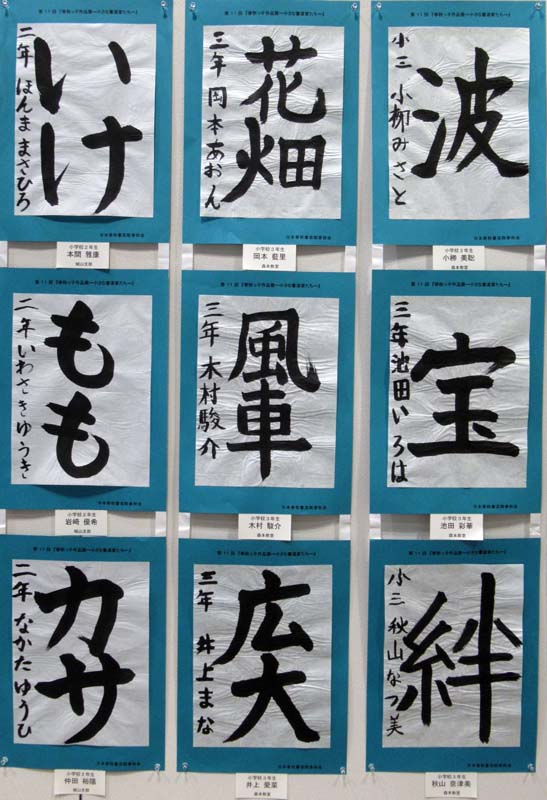 いけ
二年 ほんま まさひろ
小学校2年生
本間 雅康
城山支部
花畑
三年 岡本あおん
小学校3年生
岡本 藍里
森本教室
波
小三 小柳みさと
小学校3年生
森本教室
もも
二年いわさきゆうき
小学校2年生
岩崎 優希
城山支部
風車
三年 木村駿介
小学校3年生
木村 駿介
森本教室
宝
三年池田いろは
小学校3年生
池田 彩華
森本教室
カサ
二年 なかた ゆうひ
小学校2年生
仲田 裕陽
城山支部
広大
三年 井上まな
小学校3年生
井上 愛菜
森本教室
絆
小三 秋山なつ美
小学校3年生
秋山 奈津美
森本教室